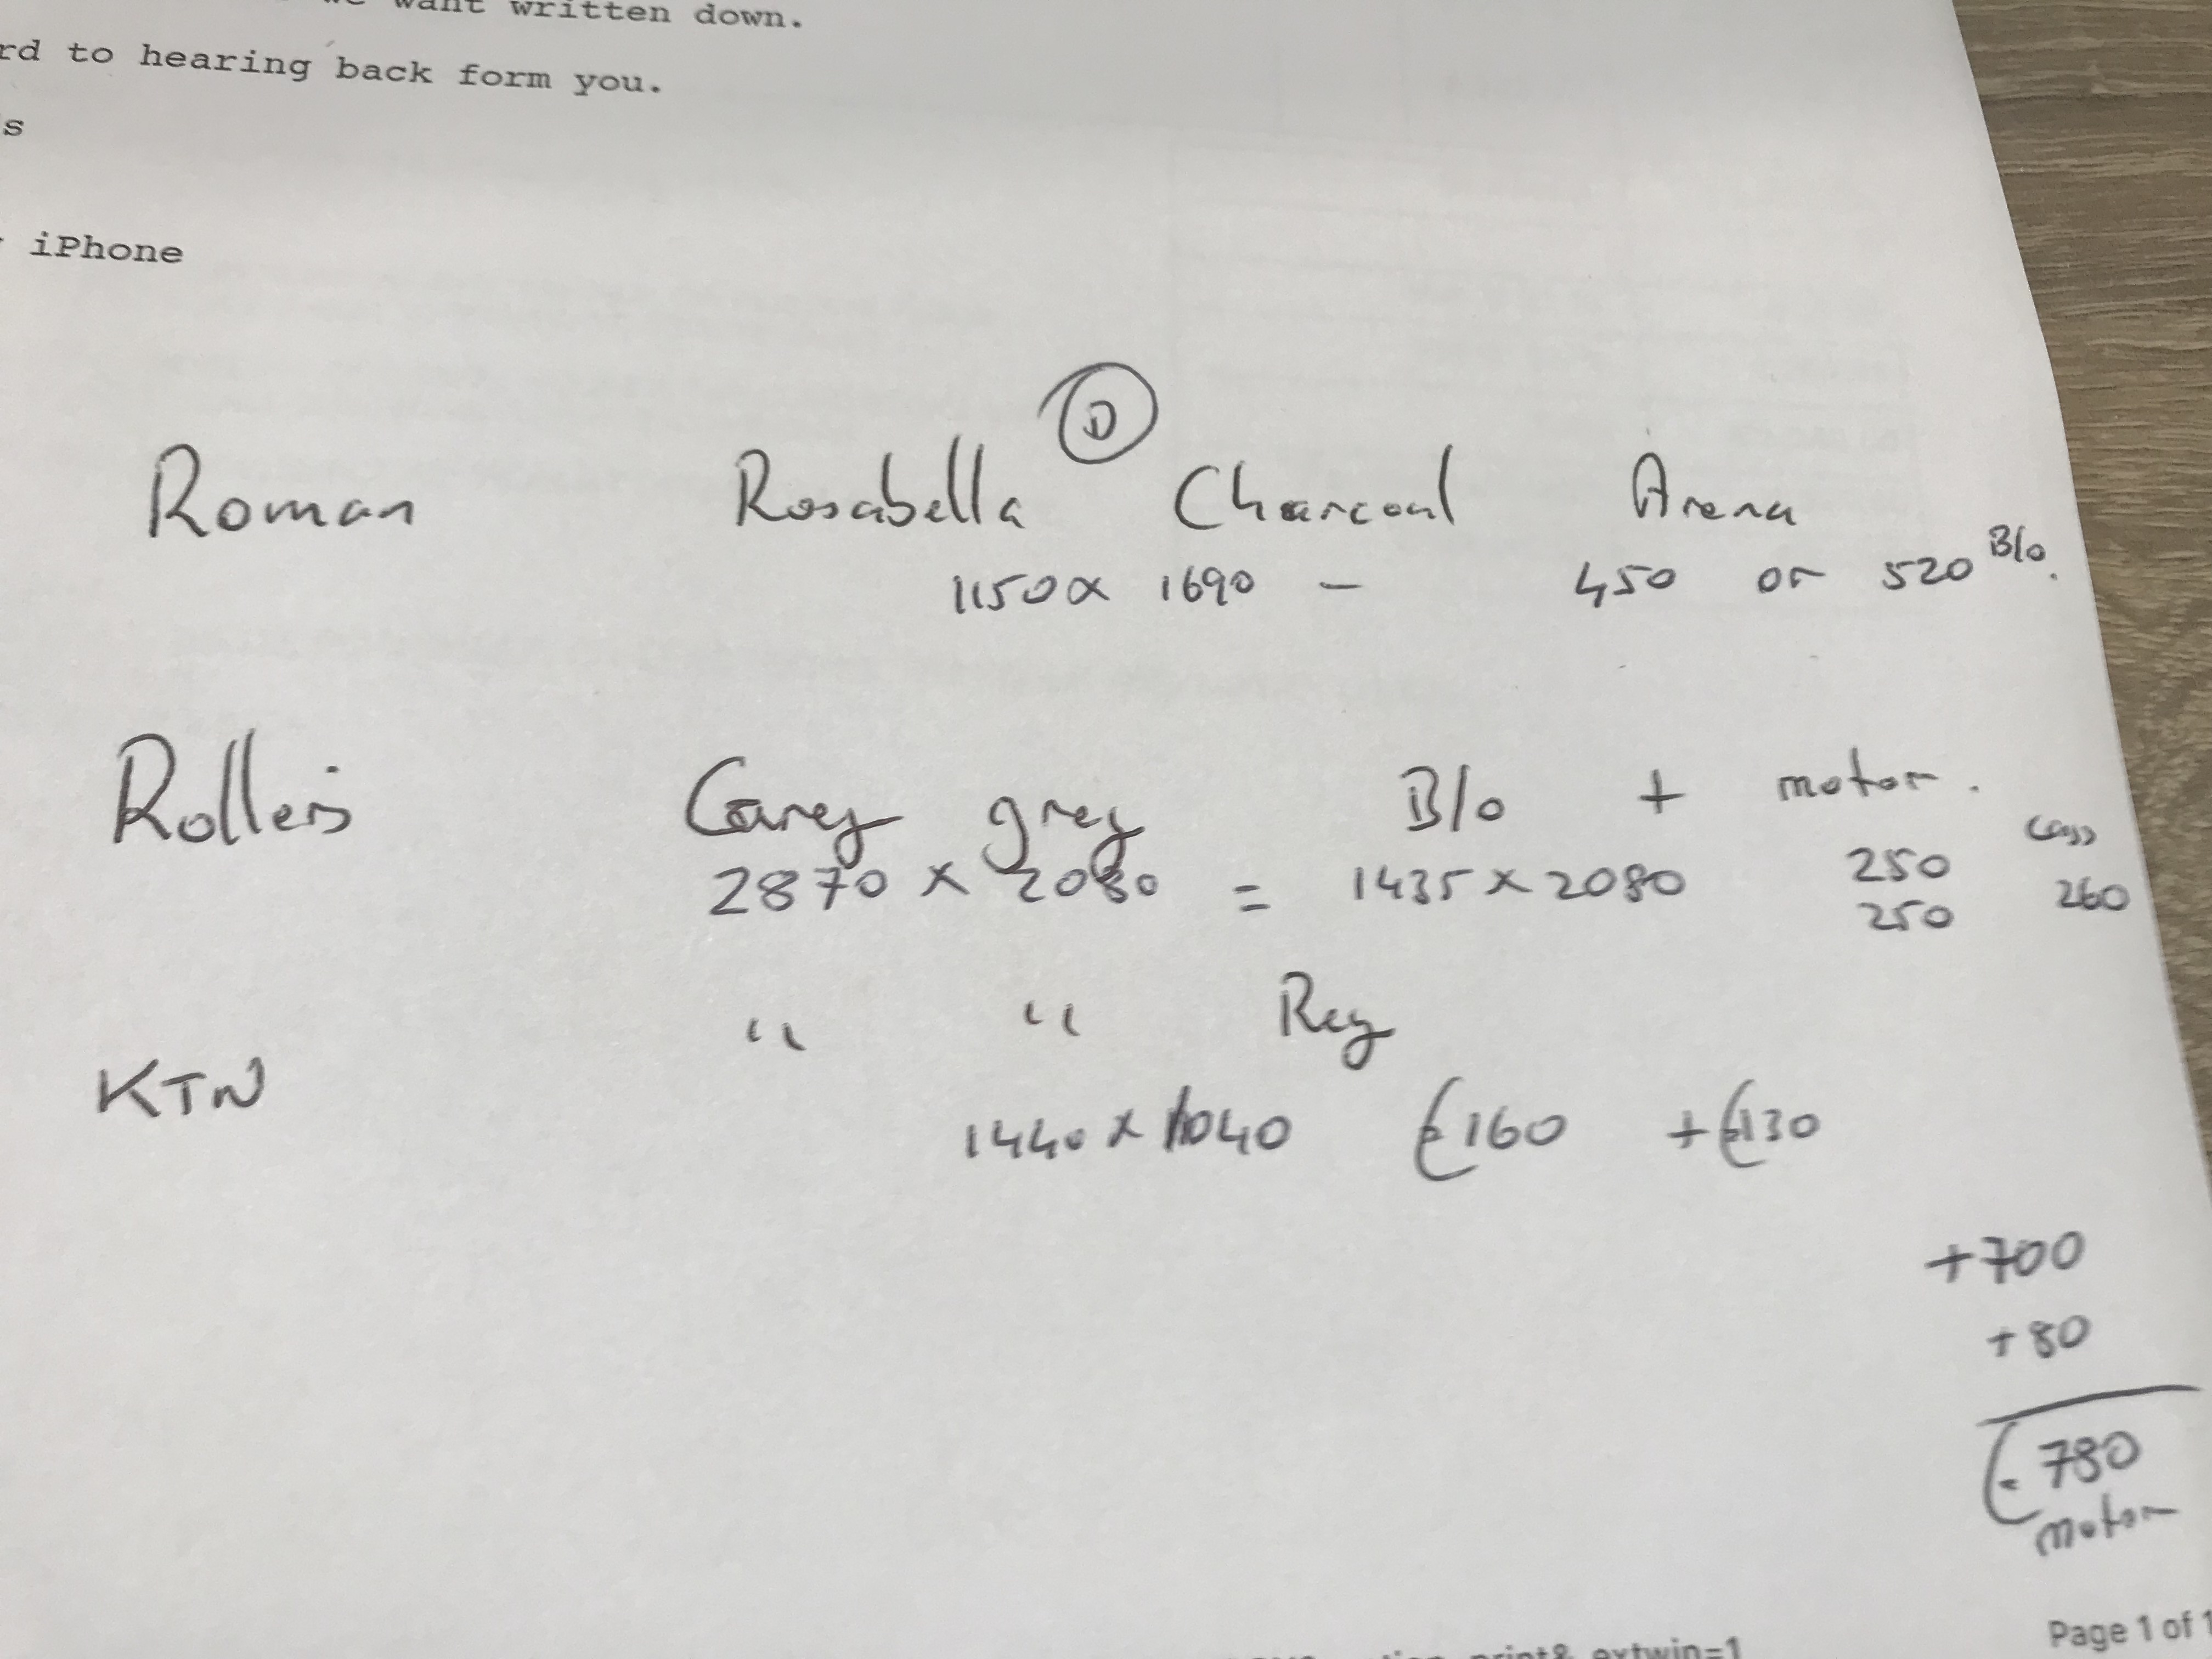 we want written down.
rd to hearing back form you.
s
iPhone
D
Roman Rosabella Charcoal Arena
1150 x 1690 - 450 or 520 B/o.
Rollers Carey grey B/o + motor.
2870 x 2080 = 1435 x 2080 250 cass
250 260
" " Reg
KTN
1440 x 1040 €160 + €130
+700
+80
€780
motor
print& extwin=1
Page 1 of 1